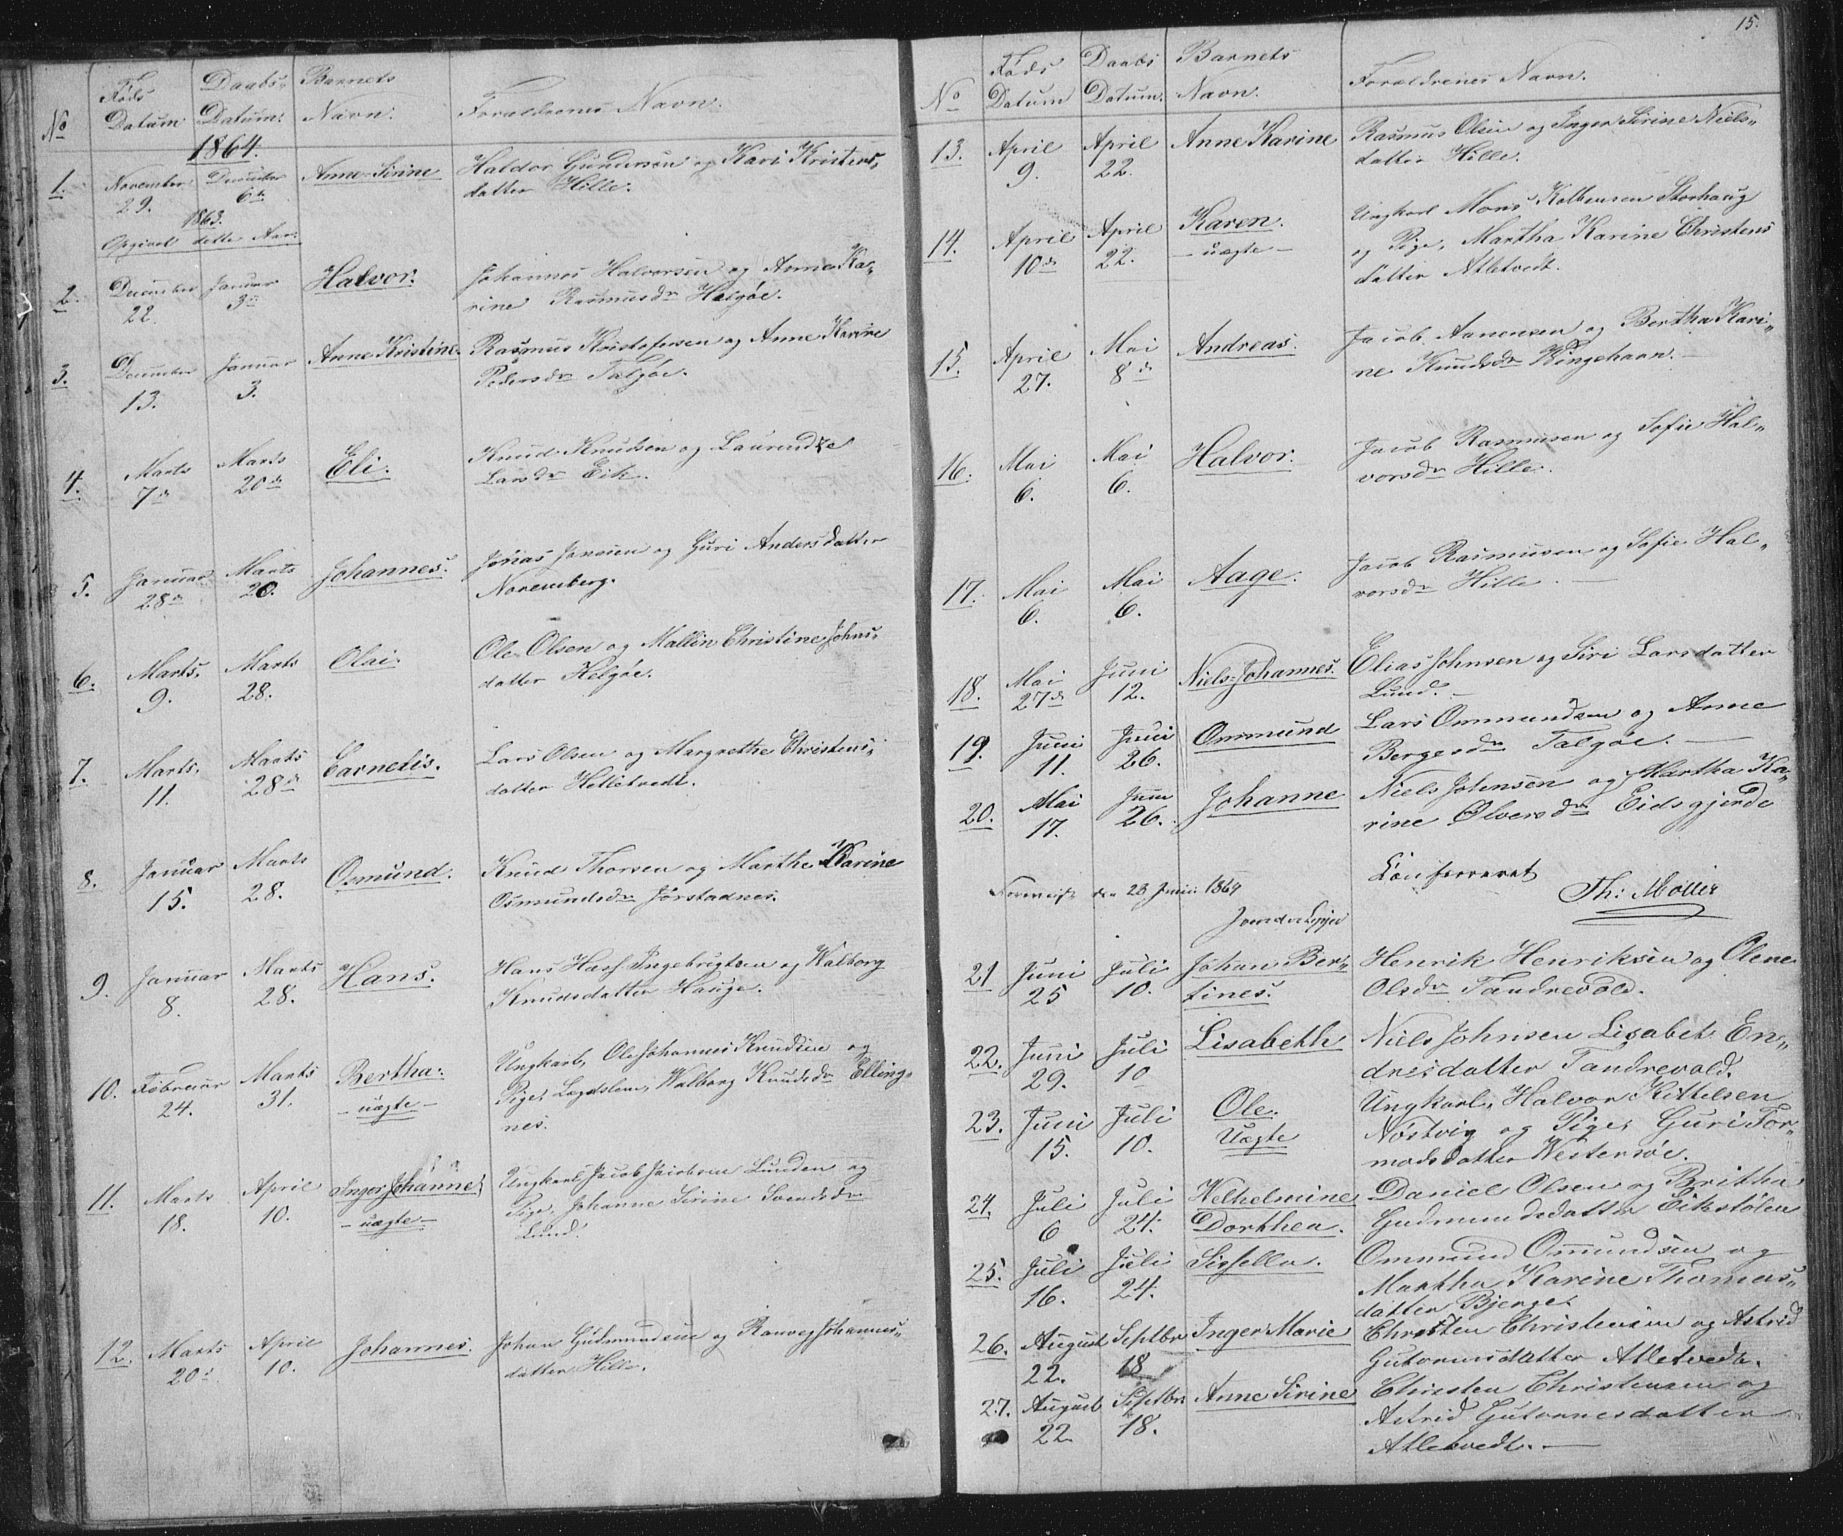 No
Føds Datum
Daabs Datum.
Barnets Navn.
Forældrenes Navn.
1864.
1. November 29. December 6te Anne Sirine Haldor Gundersen og Kari Kristens-
datter Hille.
1863.
Opgivet dette Aar.
2. December 22. Januar 3de Halvor. Johannes Halvorsen og Anne Ka-
rine Rasmusdr Halgøe.
3. December 13. Januar 3. Anne Kristine. Rasmus Kristofersen og Anne Karine
Pedersdr Talgøe.
4. Marts 7de Marts 20de Eli. Knud Knudsen og
Larsdr Eik.
5. Januar 28de Marts 20. Johannes. Jonas Jansen og Guri Andersdatter
Noremberg.
6. Marts. 9. Marts 28. Olai. Ole Olsen og Mallin Christine Johns-
datter Helgøe.
7. Marts. 11. Marts 28de Cornelis. Lars Olsen og Margrethe Christens-
datter Helletvedt.
8. Januar 15. Marts 28. Osmund. Knud Thorsen og Marthe Karine
Osmundsdr Jørstadnes.
9. Januar 8. Marts 28. Hans. Hans Ingebrigtsen og Walborg
Knudsdatter Hauge.
10. Februar 24. Marts 31. Bertha. Ungkarl, Ole Johannes Knudsen og
- uægte - Pige, Walborg Knudsdr Elling-
nes.
11. Marts 18. April 10. Inger Johanne. Ungkarl Jacob Jacobsen Lunden og
- uægte - Pige, Johanne Sirine Svendsdr
Lund.
12. Marts 20de April 10. Johannes. Johan Gudmundsen og Ranveg Johannes-
datter Hille.
15.
No
Føds Datum
Daabs Datum.
Barnets Navn.
Forældrenes Navn.
13. April 9. April 22. Anne Karine Rasmus Olsen og Inger Sirine Niels-
datter Hille.
14. April 10de April 22. Karen. Ungkarl Mons Kolbensen Storhaug
- uægte - og Pige, Martha Karine Christens
datter Atletvedt.
15. April 27. Mai 8de Andreas. Jacob Aanensen og Bertha Kari-
ne Knudsdr Vingehavn.
16. Mai 6. Mai 6. Halvor. Jacob Rasmusen og Sofie Hal-
vorsdr Hille.
17. Mai 6. Mai 6. Aage. Jacob Rasmusen og Sofie Hal-
vorsdr Hille. -
18. Mai 27de Juni 12. Niels Johannes. Elias Johnsen og Siri Larsdatter
Lund. -
19. Juni 11. Juni 26. Ommund Lars Ommundsen og Anne
Bergesdr Talgøe. -
20. Mai 17. Juni 26. Johanne Niels Johnsen og Martha Ka-
rine Ølversdr Eidsgjerde
Confererat
Th: Møller
den 23 Juni 1864
21 Juni 25 Juli 10. Johan Ber-
tines. Henrik Henriksen og Olene
Olsdr Tandrevold.
22. Juni 29. Juli 10 Lisabeth Niels Johnsen Lisabet En-
dresdatter Tandrevold.
23. Juni 15. Juli 10. Ole. Ungkarl, Halvor Kittelsen
Uægte Nøstvig og Pige, Guri Tor-
modsdatter Vestersøe.
24. Juli 6 Juli 24. Welhelmine Dorthea. Daniel Olsen og Britha
Gudmundsdatter Eikstølen
25. Juli 16. Juli 24. Sissella. Ommund Ommundsen og
Martha Karine Thomas-
datter Bjerge.
26. August 22. Septbr 18 Inger Marie Christen Christensen og Astrid
Gutormsdatter Atletvedt.
27. August 22. Septbr 18. Anne Sirine Christen Christensen og
Astrid Gutormsdatter
Atletvedt. -